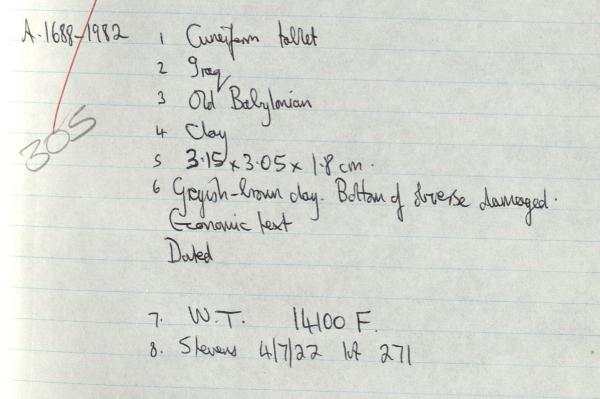 A.1688-1982 1 Cuneiform tablet
2 Iraq
3 Old Babylonian
4 Clay
305
5 3.15 x 3.05 x 1.8 cm.
6 Greyish-brown clay. Bottom of obverse damaged.
Economic text
Dated
7. W.T. 14100 F.
8. Stevens 4/7/22 lot 271